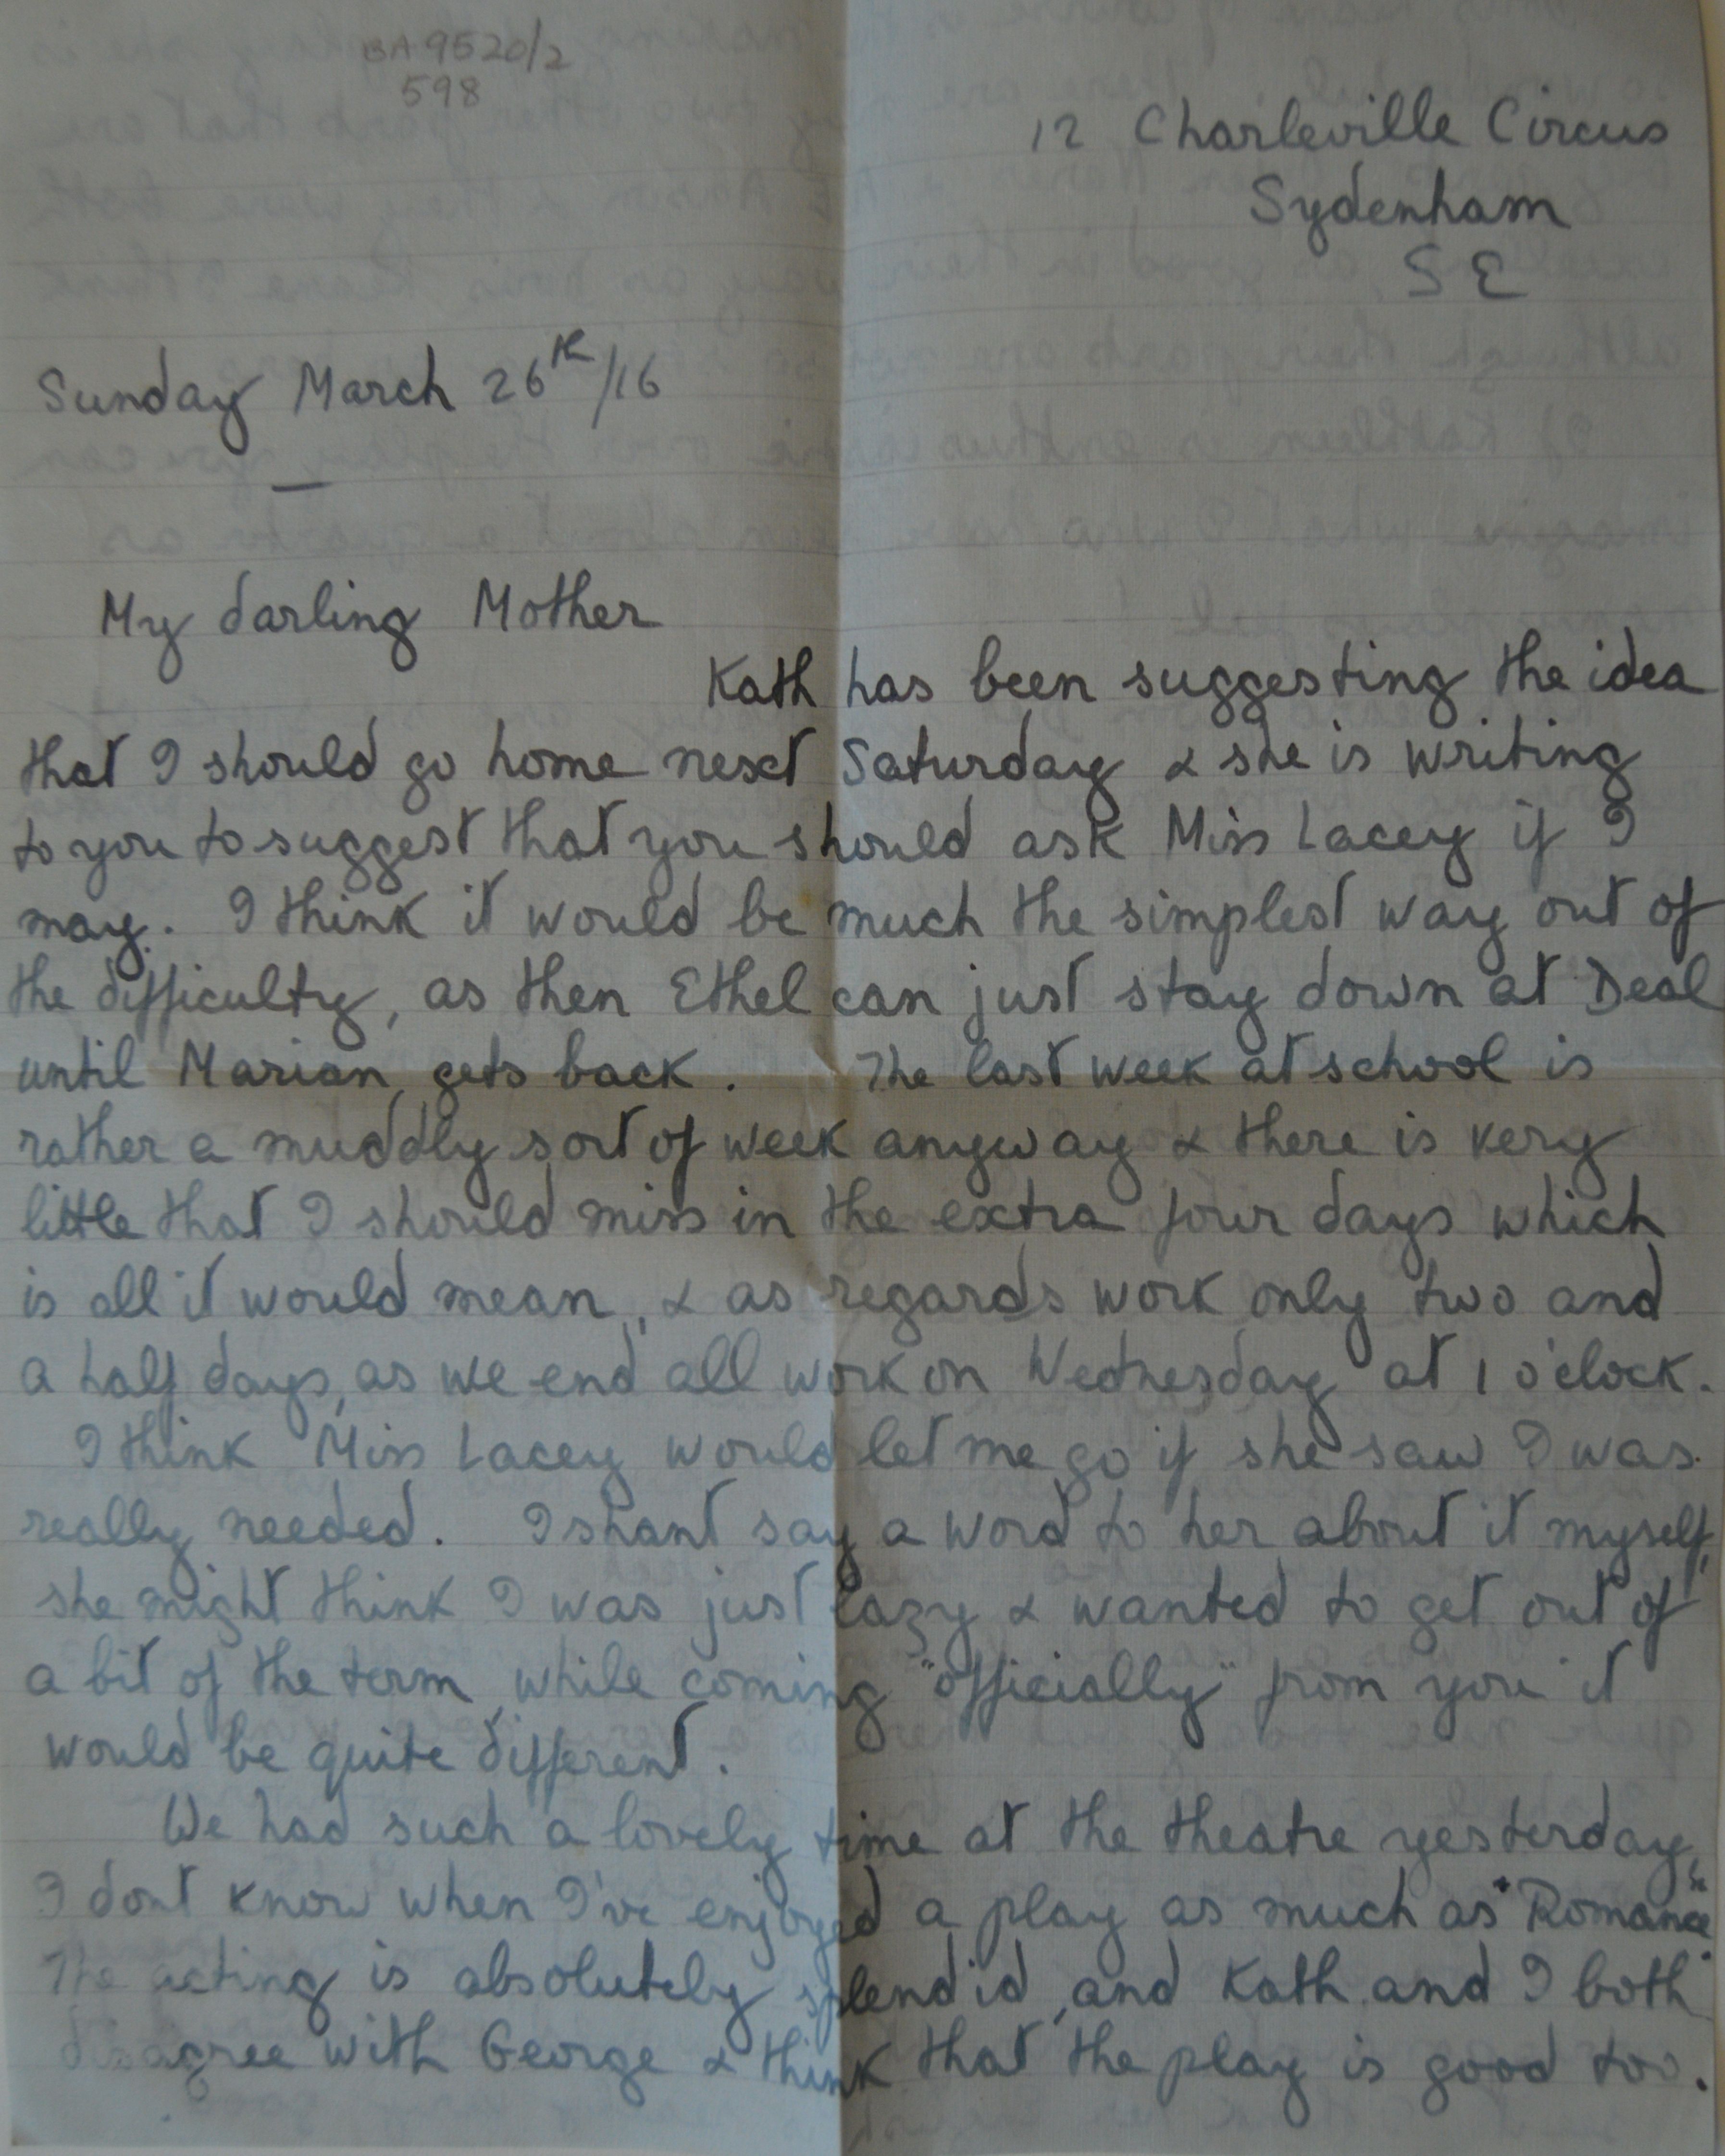 BA 9520/2
598
12 Charleville Circus
Sydenham
SE
Sunday March 26th/16
—
My darling Mother
Kath has been suggesting the idea
that I should go home next Saturday & she is writing
to you to suggest that you should ask Miss Lacey if I
may. I think it would be much the simplest way out of
the difficulty, as then Ethel can just stay down at Deal
until Marian gets back. The last week at school is
rather a muddly sort of week anyway & there is very
little that I should miss in the extra four days which
is all it would mean, & as regards work only two and
a half days, as we end all work on Wednesday at 1 o'clock.
I think Miss Lacey would let me go if she saw I was
really needed. I shant say a word to her about it myself,
she might think I was just lazy & wanted to get out of
a bit of the term, while coming "officially" from you it
would be quite different.
We had such a lovely time at the theatre yesterday,
I dont know when I've enjoyed a play as much as "Romance"
The acting is absolutely splendid, and Kath and I both
disagree with George & think that the play is good too.